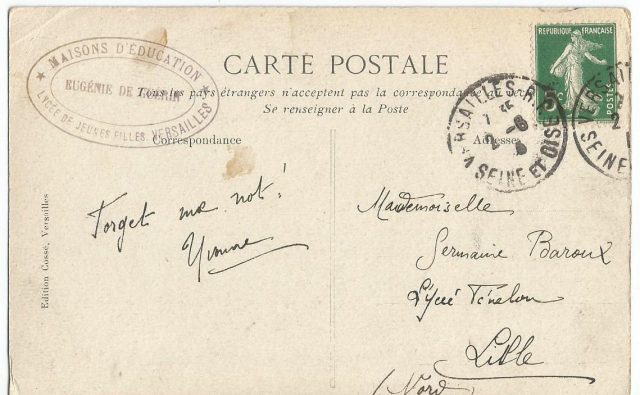 MAISONS D'ÉDUCATION
EUGÉNIE DE
LYCÉE DE JEUNES FILLES. VERSAILLES
CARTE POSTALE
Tous les pays étrangers n'acceptent pas la correspondance
Se renseigner à la Poste
Correspondance
Adresse
RÉPUBLIQUE FRANÇAISE
VERSAILLES R.P.
2 - 8
SEINE ET OISE
VERSAI
2
SEINE
Forget me not!
Yvonne
Mademoiselle
Germaine Baroux
Lycée Fénelon
Lille
(Nord)
Edition Cosse, Versailles